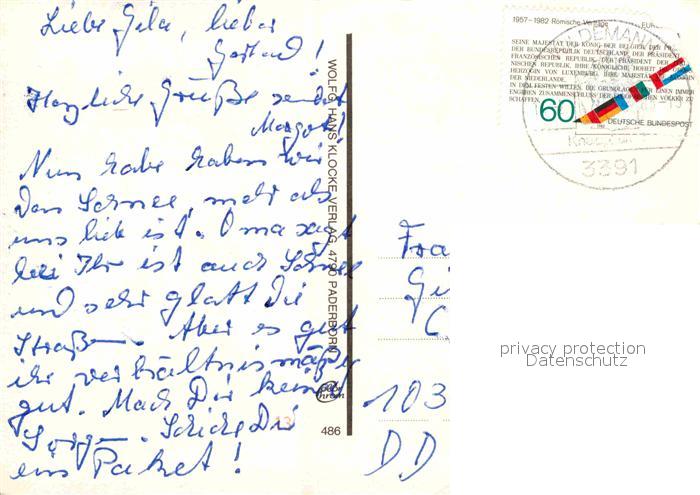 Liebe Gila, lieber
Gerhard!
Herzliche Grüße sendet
Margot!
Nun habe haben wir
den Schnee, mehr als
uns lieb ist. Oma sagt
bei Ihr ist auch Schnee
und sehr glatt die
Straßen. Aber es geht
ihr verhältnismäßig
gut. Mach Dir keine
Sorgen. Schicke Dir
ein Paket!
WOLFG. HANS KLOCKE VERLAG, 4790 PADERBORN
486
1957–1982 Römische Verträge
SEINE MAJESTÄT DER KÖNIG DER BELGIER, DER
DER BUNDESREPUBLIK DEUTSCHLAND, DER PRÄSIDENT
FRANZÖSISCHEN REPUBLIK, DER PRÄSIDENT DER
NISCHEN REPUBLIK, IHRE KÖNIGLICHE HOHEIT
HERZOGIN VON LUXEMBURG, IHRE MAJESTÄT
DER NIEDERLANDE,
IN DEM FESTEN WILLEN, DIE GRUNDLAGEN EINEN IMMER
ENGEREN ZUSAMMENSCHLUSS DER VÖLKER ZU
SCHAFFEN,
60
DEUTSCHE BUNDESPOST
3391
Fra
Gi
103
DD
privacy protection
Datenschutz